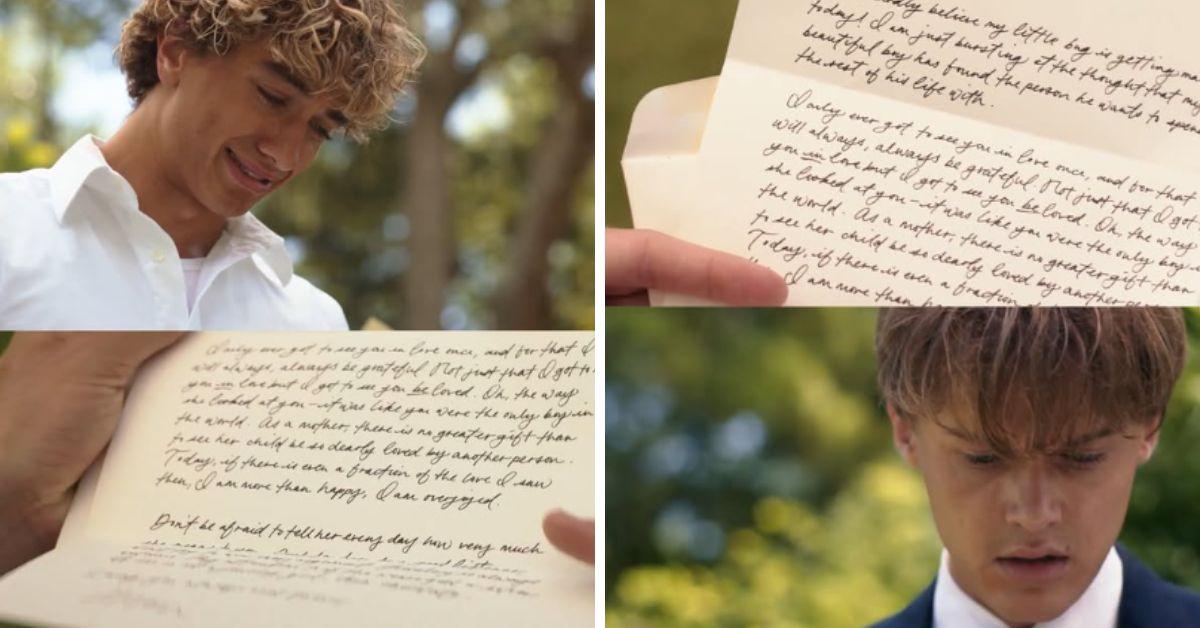 believe my little bug is getting
today! I am just bursting at the thought that my
beautiful boy has found the person he wants to spend
the rest of his life with.
I only ever got to see you in love once, and for that I
will always, always be grateful. Not just that I got
you in love but I got to see you be loved. Oh, the way
she looked at you - it was like you were the only boy in
the world. As a mother, there is no greater gift than
to see her child be so dearly loved by another
Today, if there is even a fraction
I am more than
I only ever got to see you in love once, and for that I
will always, always be grateful. Not just that I got to
you in love but I got to see you be loved. Oh, the way
she looked at you - it was like you were the only boy in
the world. As a mother, there is no greater gift than
to see her child be so dearly loved by another person.
Today, if there is even a fraction of the love I saw
then, I am more than happy, I am overjoyed.
Don't be afraid to tell her every day how very much